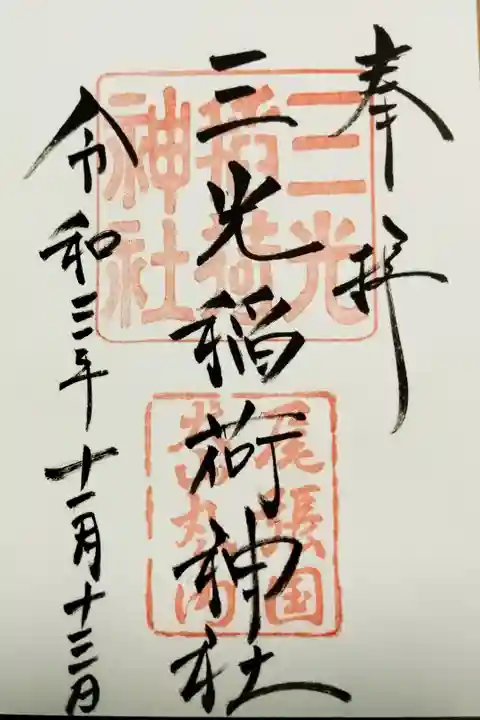 奉拝
三光稲荷神社
令和三年十一月十三日
三光
稲荷
神社
尾張国